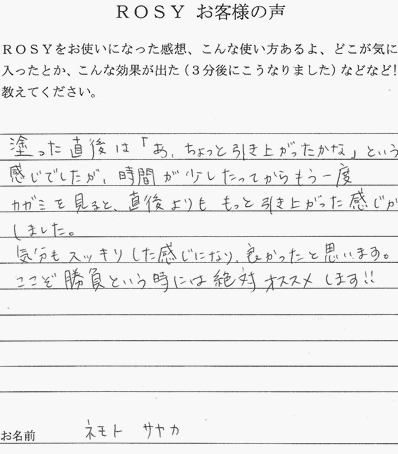 ROSY お客様の声
ROSYをお使いになった感想、こんな使い方あるよ、どこが気に
入ったとか、こんな効果が出た（３分後にこうなりました）などなど！
教えてください。
塗った直後は「あ、ちょっと引き上がったかな」という
感じでしたが、時間が少したってからもう一度
カガミを見ると、直後よりも もっと引き上がった感じが
しました。
気分もスッキリした感じになり、良かったと思います。
ここぞ勝負という時には絶対オススメします!!
お名前 ネモト サヤカ